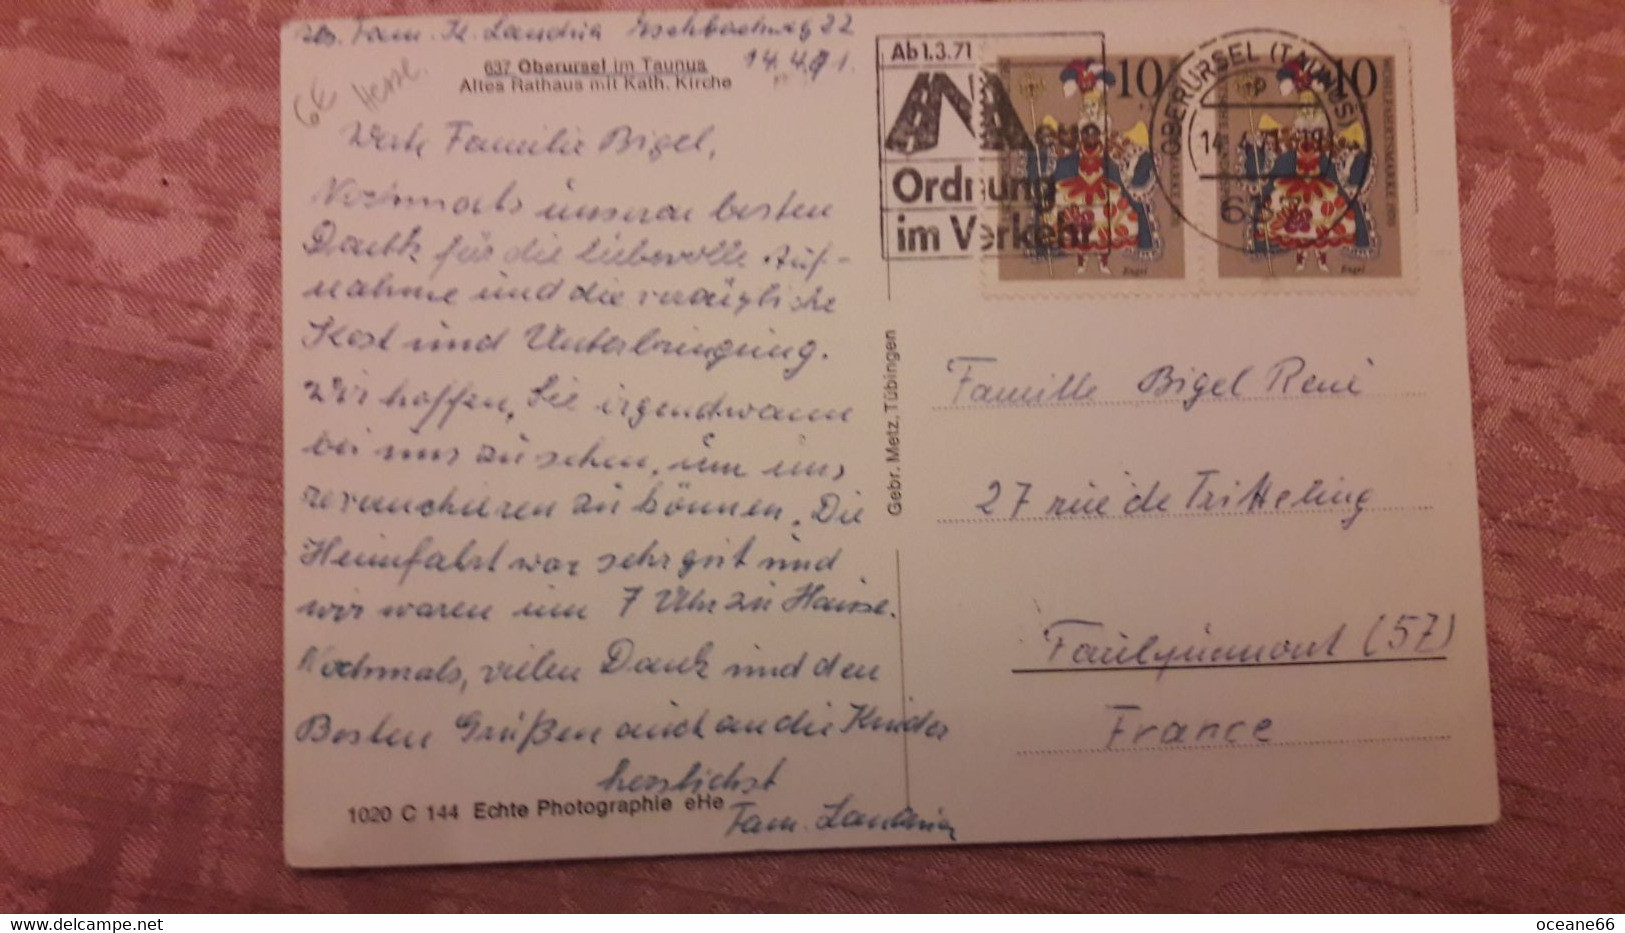 Abs. Fam. K. Landria Eschbachweg 22
14.4.71.
637 Oberursel im Taunus
Altes Rathaus mit Kath. Kirche
6€ Hesse.
Werte Familie Bigel,
Nochmals unseren besten
Dank für die liebevolle Auf-
nahme und die vorzügliche
Kost und Unterbringung.
Wir hoffen, Sie irgendwann
bei uns zu sehen, um uns
revanchieren zu können. Die
Heimfahrt war sehr gut und
wir waren um 7 Uhr zu Hause.
Nochmals, vielen Dank und den
Besten Grüßen auch an die Kinder
herzlichst
Fam. Landria
1020 C 144 Echte Photographie eHe
Gebr. Metz, Tübingen
Ab 1.3.71
Neue
Ordnung
im Verkehr
OBERURSEL (TAUNUS)
14.4.71-19
637
10
Engel
10
Engel
Famille Bigel René
27 rue de Tritteling
Faulquemont (57)
France
delcampe.net
oceane66